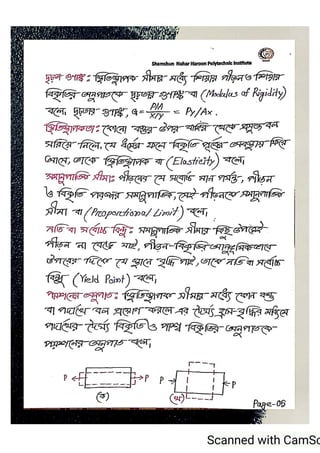 Shamshun Nahar Haroon Polytechnic Institute
দৃঢ়তা গুণাঙ্ক: স্থিতিস্থাপক সীমার মধ্যে শিয়ার পীড়ন ও শিয়ার
বিকৃতির অনুপাতকে দৃঢ়তার গুণাঙ্ক বা (Modulas of Rigidity)
বলে। দৃঢ়তার গুণাঙ্ক, G = P/A / X/Y = Py/Ax.
স্থিতিস্থাপকতা: কোনো বস্তুর উপর বাহির থেকে প্রযুক্ত বল
সরিয়ে নিলে, যে ধর্মের ফলে বিকৃতি পূর্বের অবস্থায় ফিরে
আসে, তাকে স্থিতিস্থাপক বা (Elasticity) বলে।
সমানুপাতিক সীমা: পীড়নের যে সর্বোচ্চ মান পর্যন্ত, পীড়ন
ও বিকৃতি পরস্পর সমানুপাতিক, সেই পীড়নকে সমানুপাতিক
সীমা বা (Proportional Limit) বলে।
নতি বা সর্বোচ্চ বিন্দু: সমানুপাতিক সীমার কিছু উপরেই
পীড়ন না বেড়ে যায়, পীড়ন-বিকৃতির
উপরের দিকে যে স্থানে বৃদ্ধি পাই, তাকে নতি বা সর্বোচ্চ
বিন্দু (Yield Point) বলে।
পয়শনের অনুপাত: স্থিতিস্থাপক সীমার মধ্যে কোন বস্তু
বা পদার্থে বল প্রয়োগ করলে এর দৈর্ঘ্য হ্রাস-বৃদ্ধির মাধ্যমে
পদার্থের দৈর্ঘ্য বিকৃতি ও পার্শ্ব বিকৃতির অনুপাতকে
পয়শনের অনুপাত বলে।
P P P P
(ক) (খ)
Page-05
Scanned with CamSc